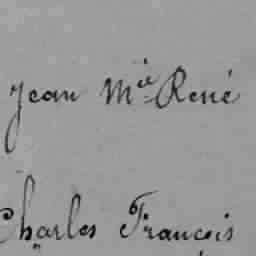 Jean Mie René
Charles François